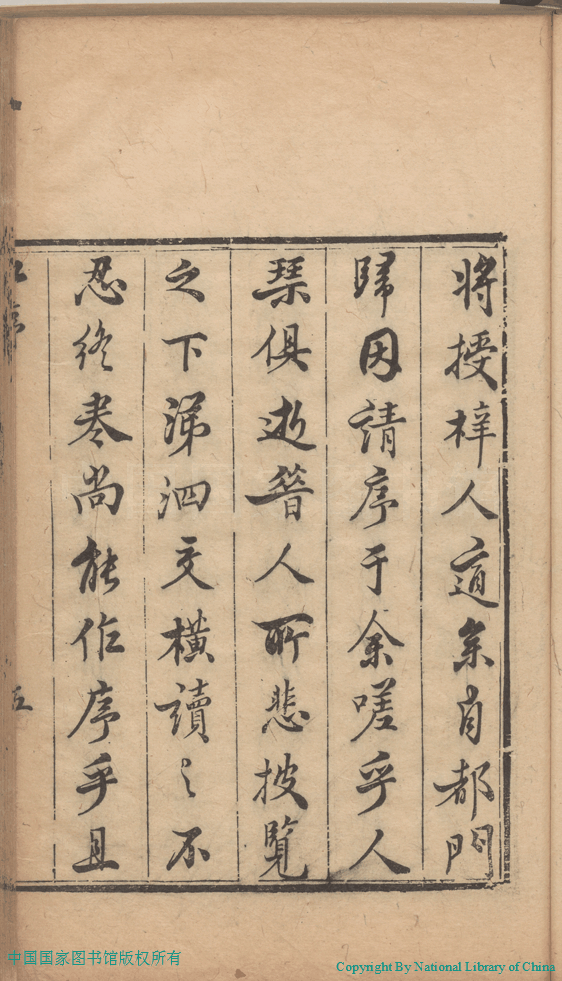 將授梓人適余自都門
歸因請序于余嗟乎人
琴俱逝昔人所悲披覽
之下涕泗交橫讀之不
忍終卷尚能作序乎且
五
中国国家图书馆版权所有
Copyright By National Library of China